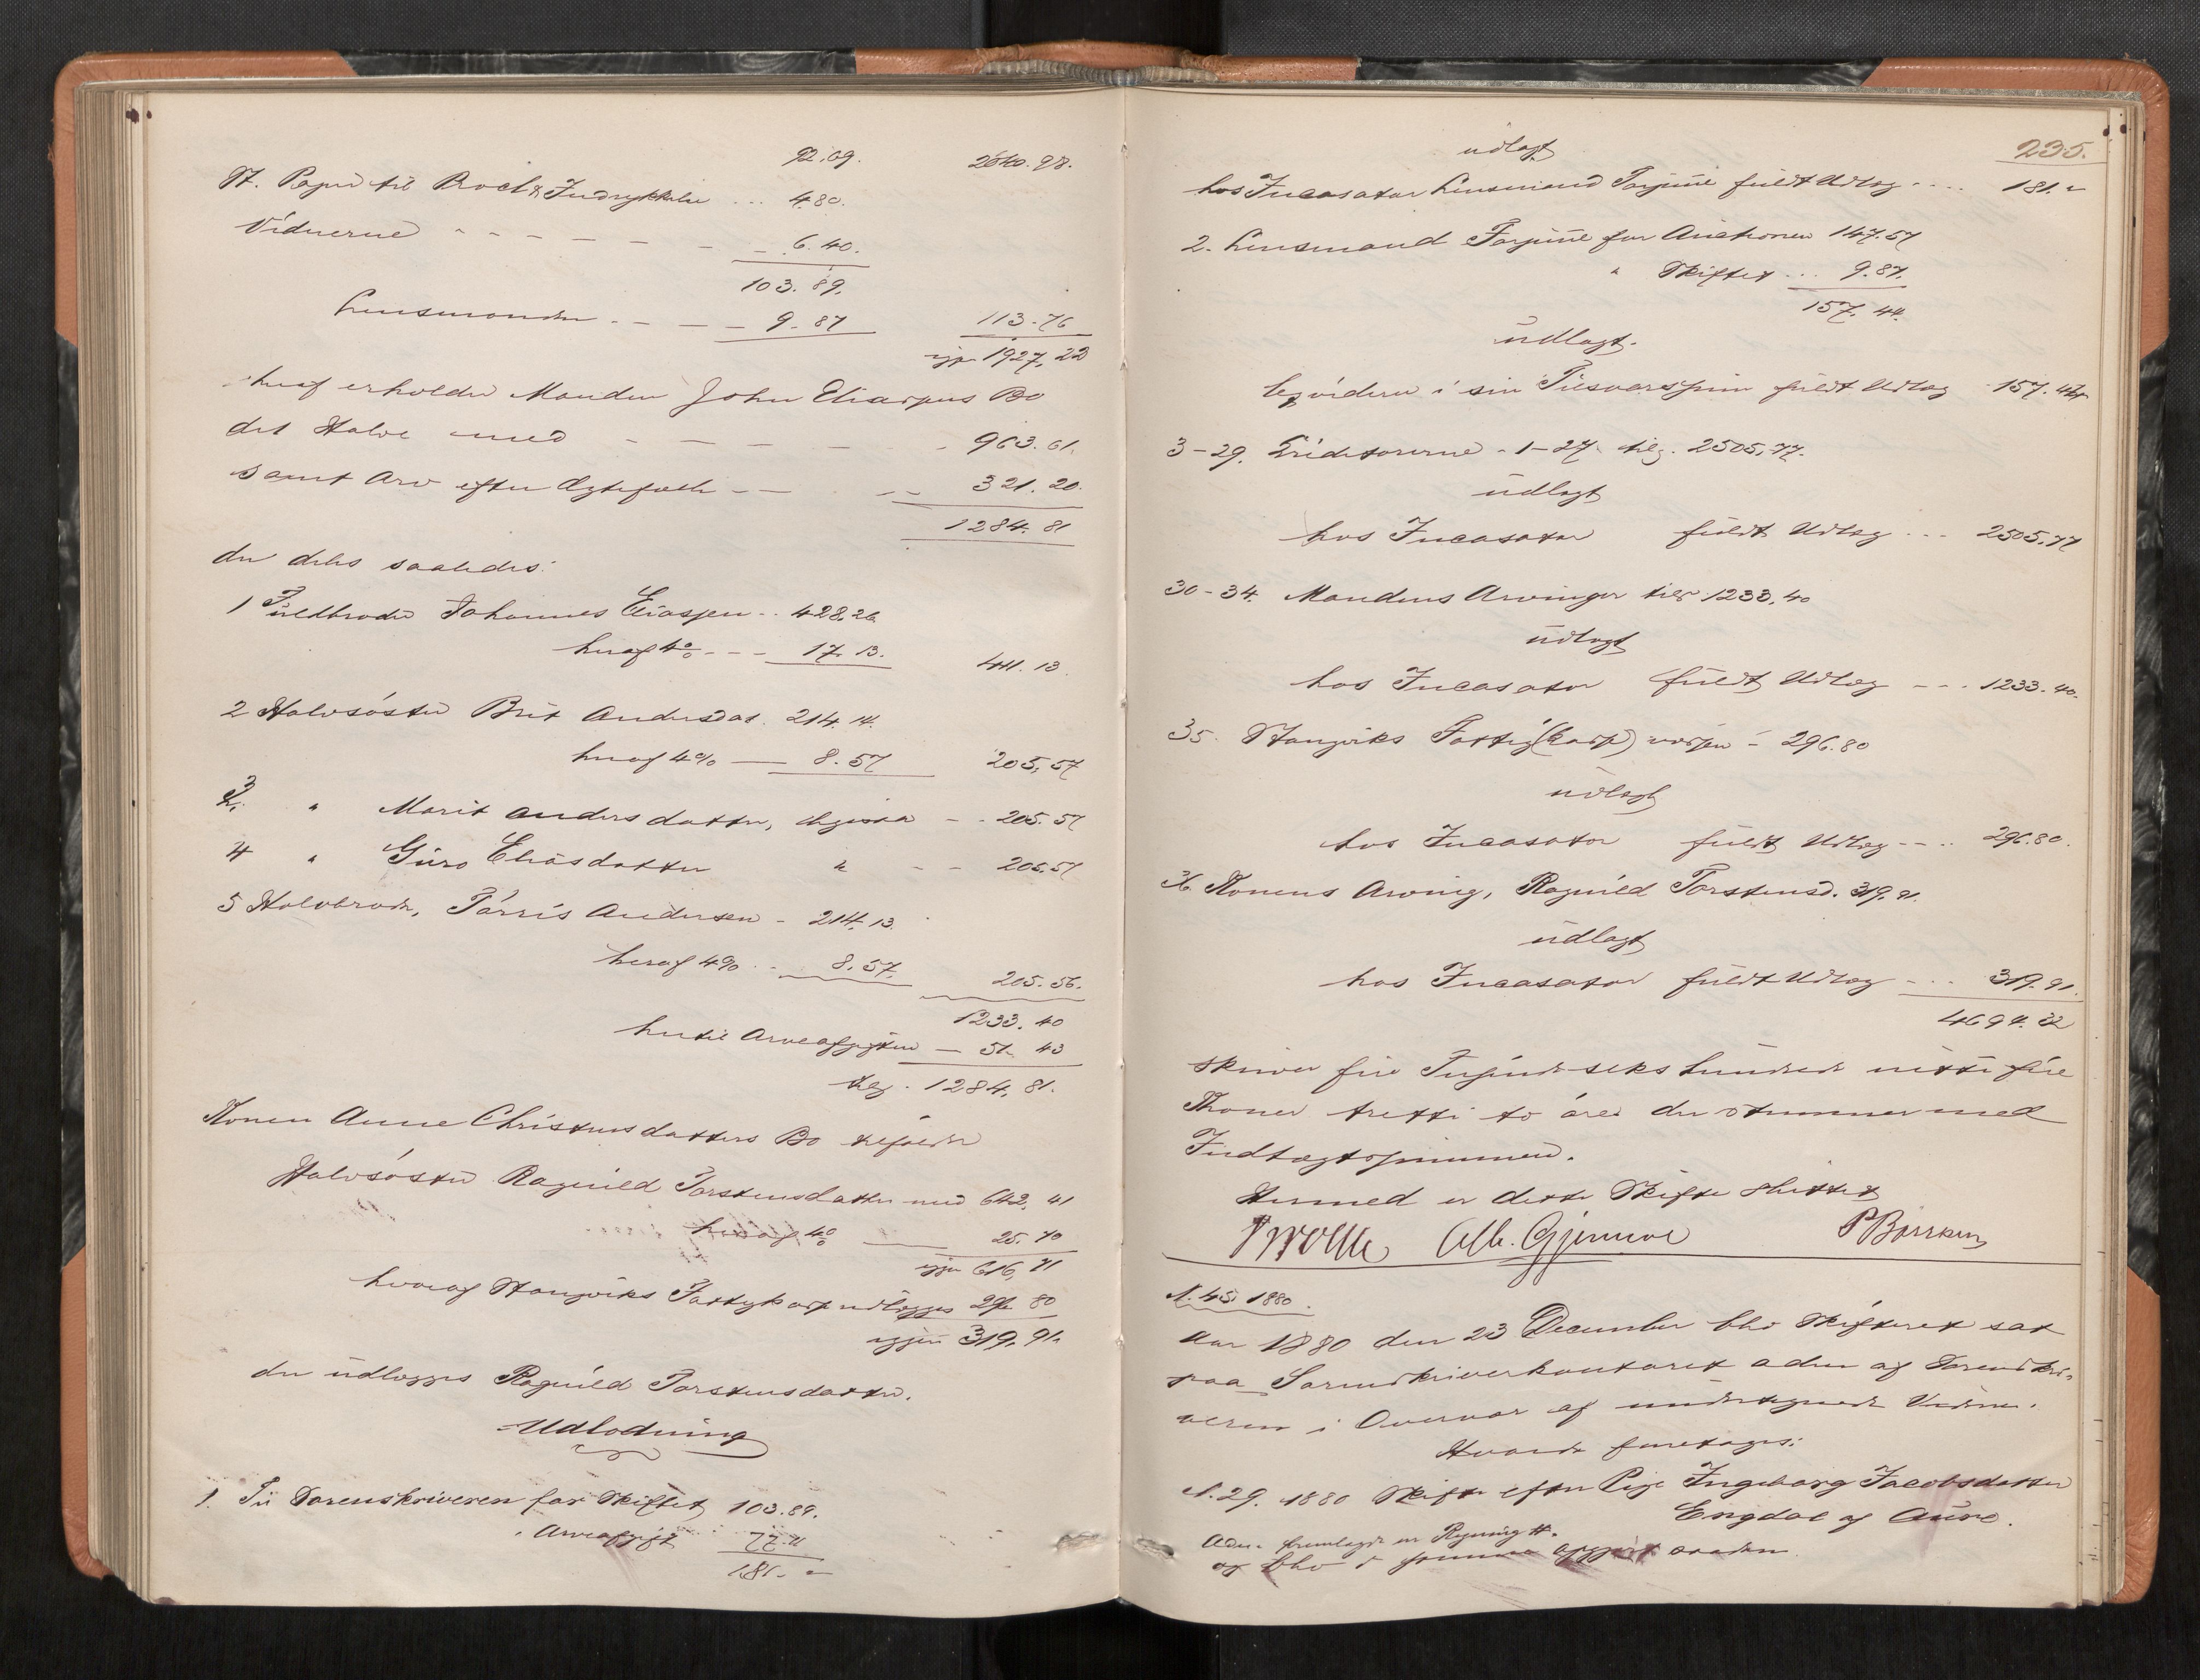 92.69. 2040.98.
St. Papir til Procl. & Indrykkelse ... 4.80.
Vidnerne - - - - - - 6.40.
103.89.
Lensmanden - - - 9.87 113.76
igjen 1927.22
heraf erholder Manden John Eliaspens Bo
det Halve med - - - - - 963.61.
samt Arv efter Ægtefælle - - - - 321.20.
1284.81
der deles saaledes:
1 Fuldbroder Johannes Eliassen .. 428.26
heraf 4% - - - 17.13. 411.13.
2 Halvsøster Brit Andersdat. 214.14.
heraf 4% — 8.57 205.57
3. " Marit Andersdatter, ligesaa - - 205.57
4 " Guro Eliasdatter " - - 205.57
5 Halvbroder, Tørris Andersen - 214.13.
heraf 4% .. 8.57. 205.56.
1233.40
hertil Arveafgiften — 51.43
tils. 1284.81.
Konen Anne Christensdatters Bo tilfalder
Halvsøster Ragnild Torstensdatter med 642.41
heraf 4% — 25.70
igjen 616.71
hvoraf Stangviks Fattigkasse udlægges 296.80
igjen 319.91.
der udlægges Ragnild Torstensdatter.
Udlodning
1. Til Sorenskriveren for Skiftet 103.89.
" Arveafgift 77.11
181. "
235.
udlagt
hos Incasator Lensmand fuldt Udlæg .... 181. "
2. Lensmand for Auctionen 147.57
" Skiftet ... 9.87.
157.44.
udlagt.
i sin Tilsvarssum fuldt Udlæg 157.44
3-29. Creditorerne - 1-27. tils. 2505.77.
udlagt
hos Incasator fuldt Udlæg ... 2505.77
30-34. Mandens Arvinger tils 1233.40
udlagt
hos Incasator fuldt Udlæg - - - 1233.40.
35. Stangviks Fattig(kasse)væsen - 296.80
udlagt
hos Incasator fuldt Udlæg - - .. 296.80.
36 Konens Arving, Ragnild Torstensd. 319.91.
udlagt
hos Incasator fuldt Udlæg ... 319.91.
4694.32
skriver fire Tusinde seks hundrede nitti fire
Kroner tretti to øre der stemmer med
Indtægtssummen.
Hermed er dette Skifte sluttet
Alb. Gjerne
N. 45. 1880.
Aar 1880 den 23 December blev Skifteret sat
paa Sorenskriverkontoret adm. af Sorenskri-
veren i Overvær af undertegnede Vidner.
Hvorda foretages:
N. 29. 1880 Skifte efter Pige Ingeborg Jacobsdatter
Engdal af Aure.
Adm. fremlagde en Regning H.
og blev i Summa opgjort saadan